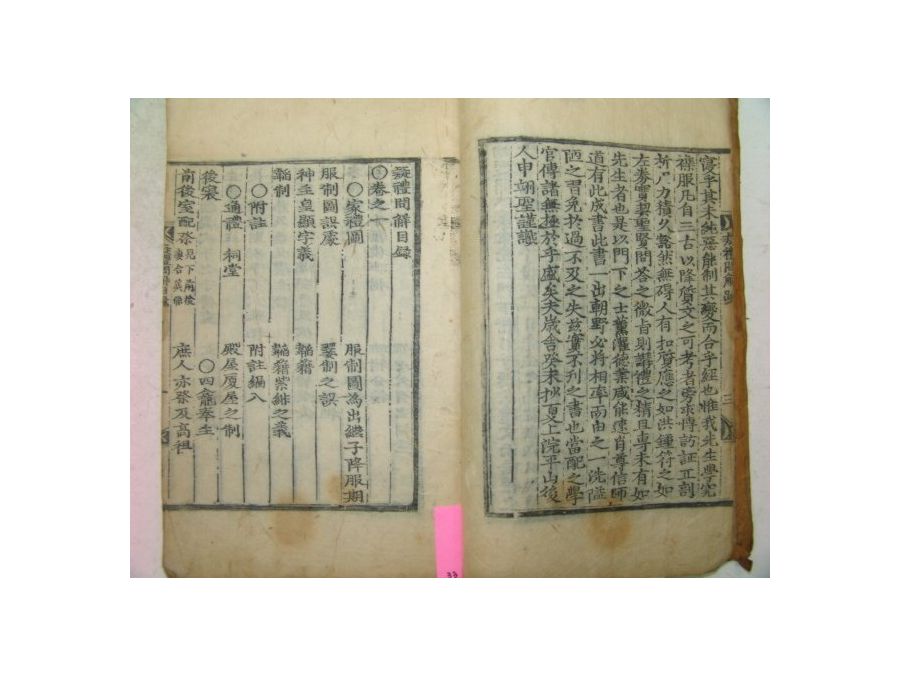 寔乎其未純惡能制其變而合乎經也惟我先生學究
禮服凡自三古以降質文之可考者旁求博訪証正剖
析用力積久豁然無碍人有扣質應之如洪鍾符之如
左券實契聖賢問答之微旨則講禮之精且專未有如
先生者也是以門下之士薰濯德業咸能速肖尊信師
道有此成書此書一出朝野必將相率而由之一洗隘
陋之習免於過不及之失玆豈不刊之書也當配之學
官傳諸無極於乎盛矣夫歲舍癸未抄夏上院平山後
人申翊聖謹識
疑禮問解目錄
○卷之一
○家禮圖
服制圖爲出繼子降服期
服制圖誤處
襲制之誤
神主皇顯字義
韜藉
韜制
韜藉紫緋之義
○附註
附註編入
○通禮 祠堂
殿屋厦屋之制
後寢
○四龕奉主
前後室配祭 見下前後妻合葬條
庶人亦祭及高祖
疑禮問解目錄
三
33